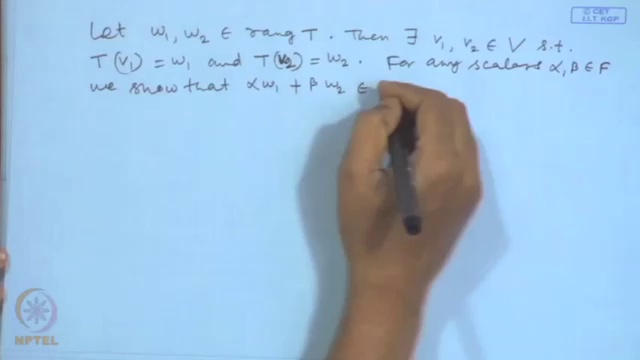 © CET
I.I.T. KGP
Let w₁, w₂ ∈ rang T. Then ∃ v₁, v₂ ∈ V s.t.
T(v₁) = w₁ and T(v₂) = w₂. For any scalars α, β ∈ F
we show that αw₁ + βw₂ ∈
NPTEL